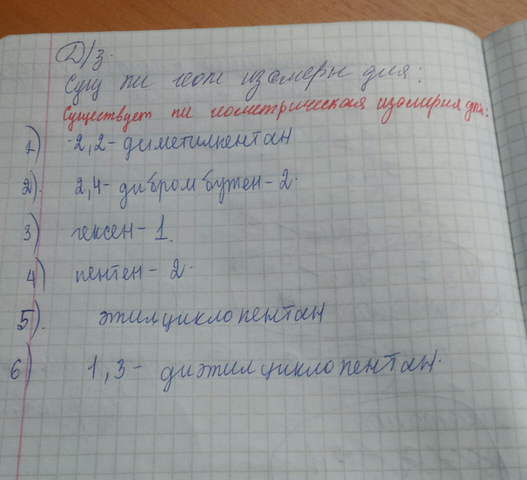 Д/З.
Сущ ли геом изомеры для:
Существует ли геометрическая изомерия для:
1) 2,2-диметилпентан
2). 2,4-дибромбутен-2.
3) гексен-1.
4) пентен-2.
5). этилциклопентан
6) 1,3-диэтилциклопентан.